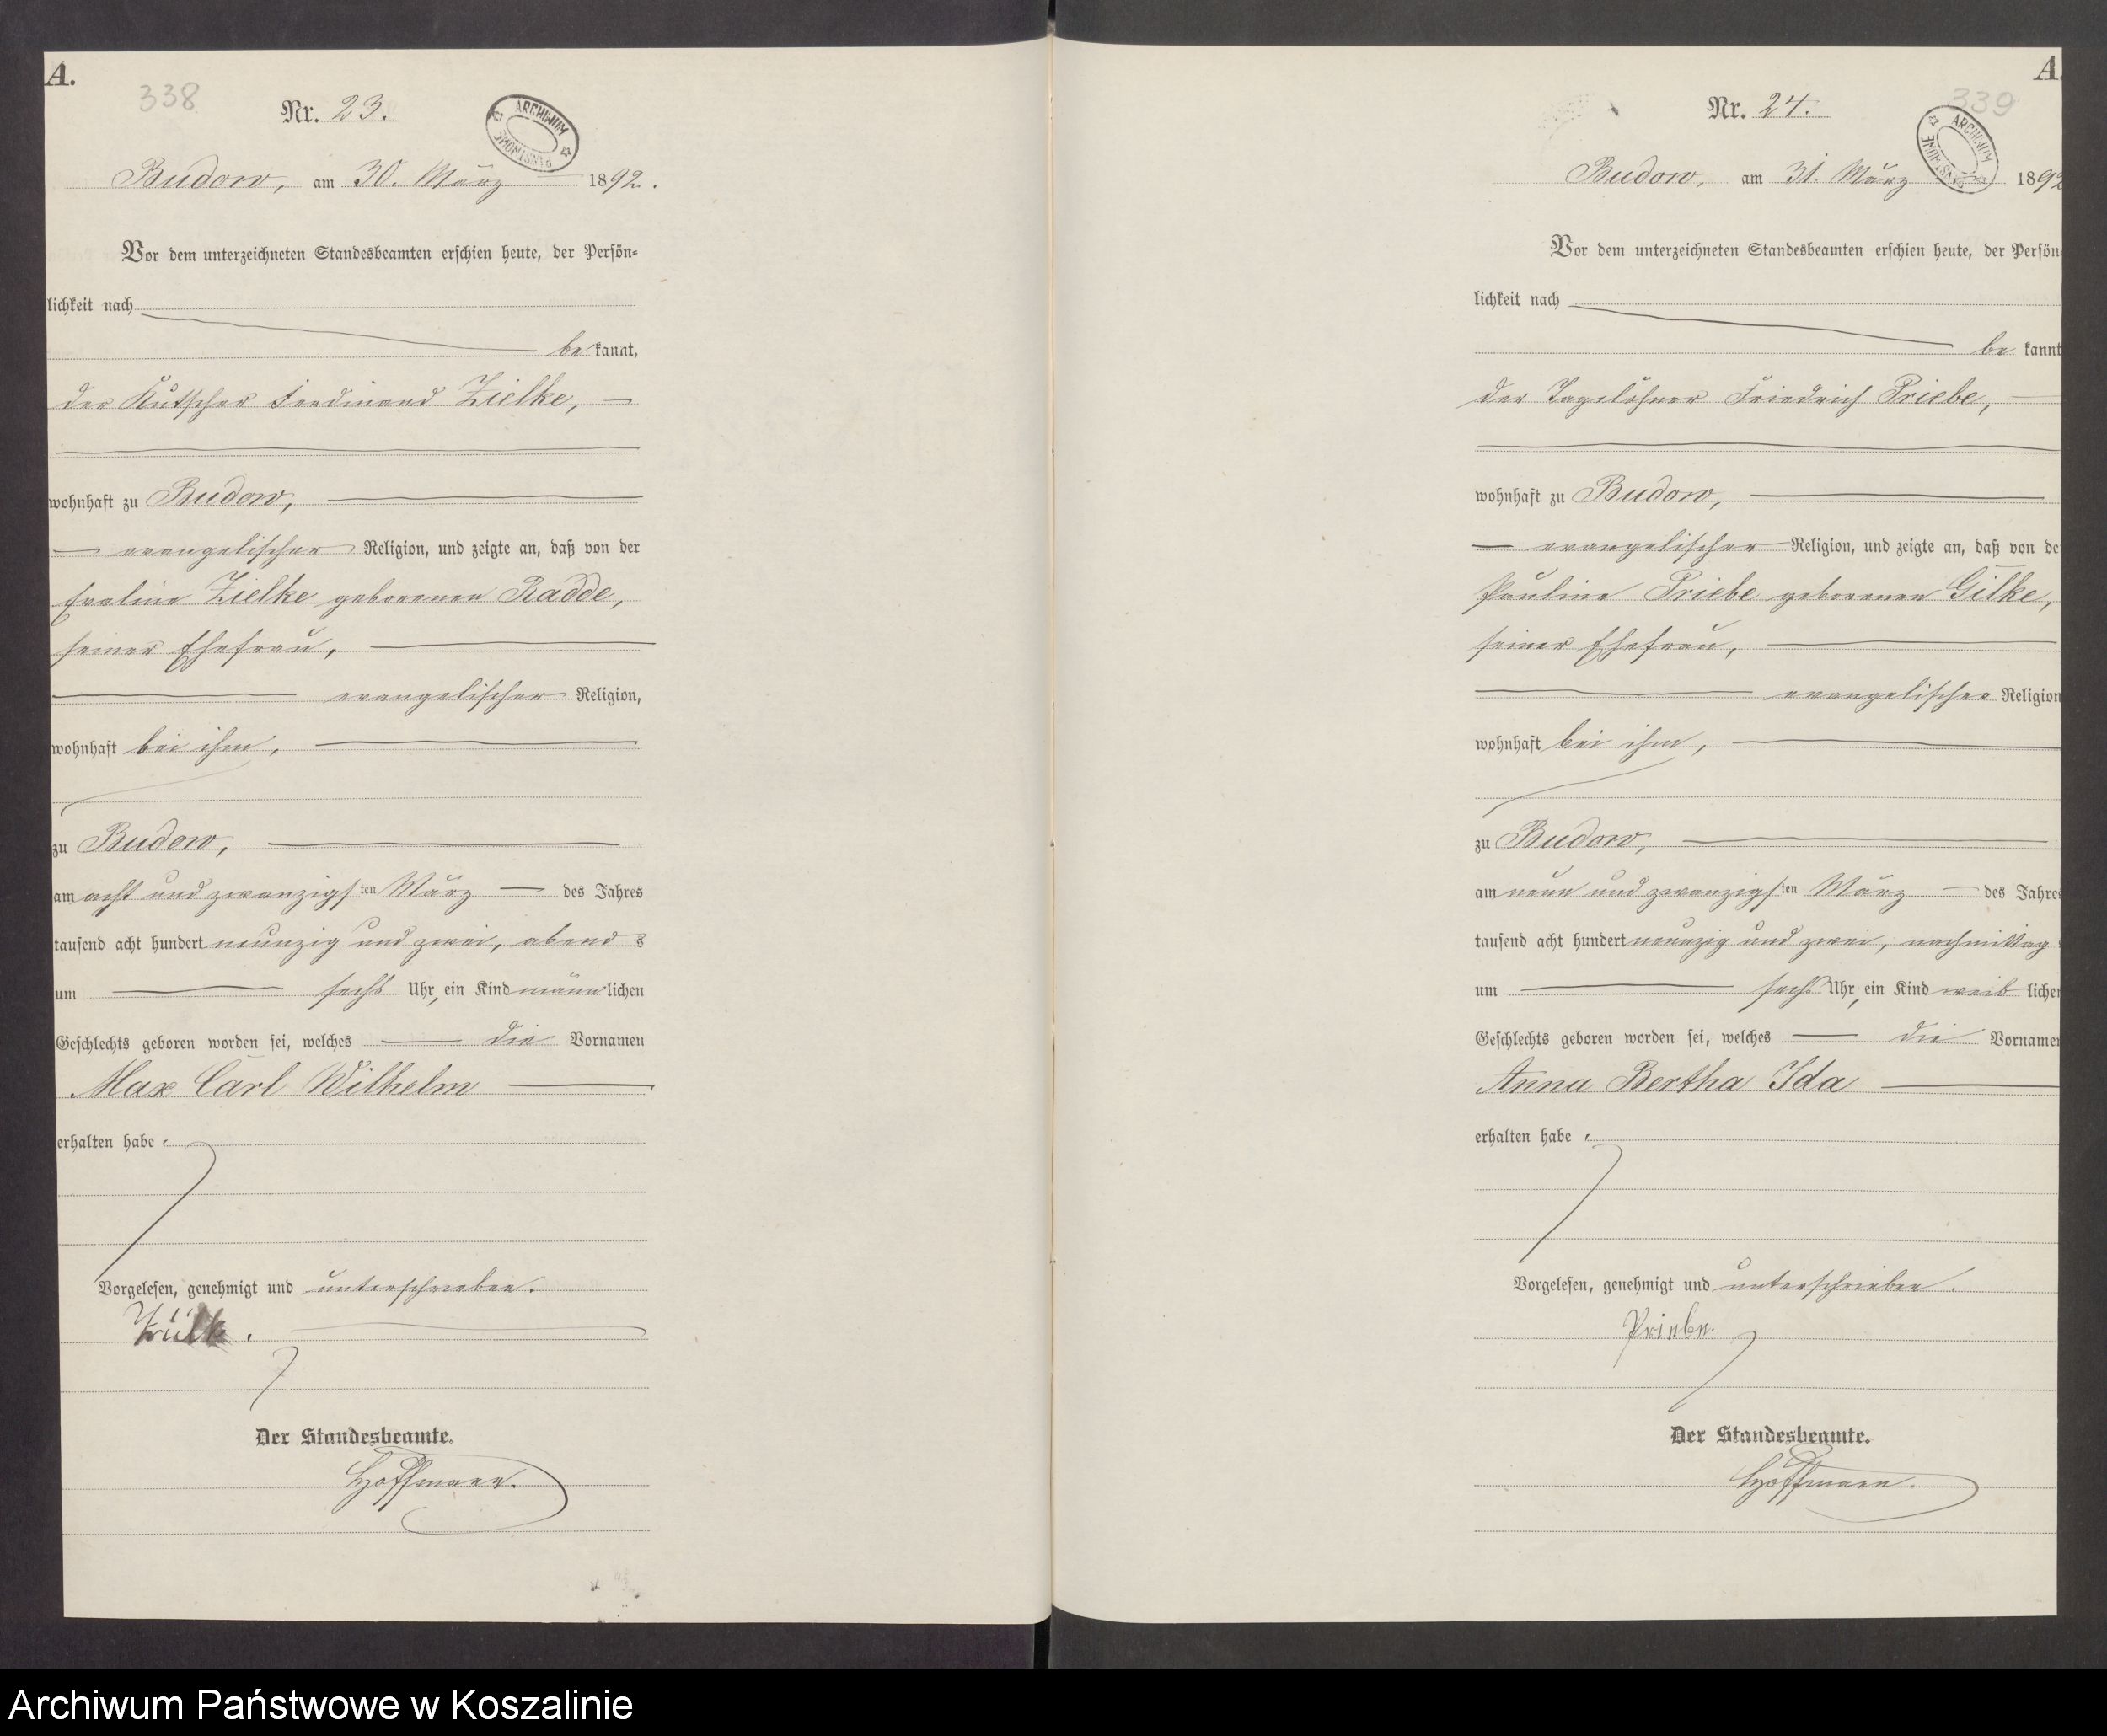 A.
338
Nr. 23.
ARCHIWUM PAŃSTWOWE
Budow, am 30. März 1892.
Vor dem unterzeichneten Standesbeamten erschien heute, der Persön-
lichkeit nach
be kannt,
der Kutscher Ferdinand Zielke,
wohnhaft zu Budow,
evangelischer Religion, und zeigte an, daß von der
Eveline Zielke geborenen Radde,
seiner Ehefrau,
evangelischer Religion,
wohnhaft bei ihm,
zu Budow,
am acht und zwanzigsten März des Jahres
tausend acht hundert neunzig und zwei, abends
um sechs Uhr, ein Kind männlichen
Geschlechts geboren worden sei, welches die Vornamen
Max Carl Wilhelm
erhalten habe.
Vorgelesen, genehmigt und unterschrieben.
Der Standesbeamte.
Hoffmann.
A.
339
Nr. 24.
ARCHIWUM PAŃSTWOWE
Budow, am 31. März 1892
Vor dem unterzeichneten Standesbeamten erschien heute, der Persön
lichkeit nach
be kannt
der Tagelöhner Friedrich Priebe,
wohnhaft zu Budow,
evangelischer Religion, und zeigte an, daß von de
Pauline Priebe geborenen Gilke,
seiner Ehefrau,
evangelischer Religion
wohnhaft bei ihm,
zu Budow,
am neun und zwanzigsten März des Jahres
tausend acht hundert neunzig und zwei, nachmittag
um sechs Uhr, ein Kind weiblichen
Geschlechts geboren worden sei, welches die Vornamen
Anna Bertha Ida
erhalten habe.
Vorgelesen, genehmigt und unterschrieben.
Priebe.
Der Standesbeamte.
Hoffmann.
Archiwum Państwowe w Koszalinie